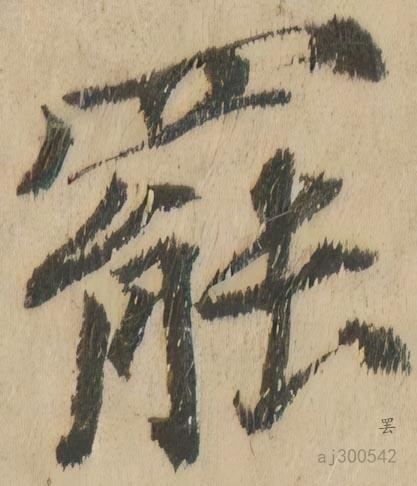 罷
罢
aj300542